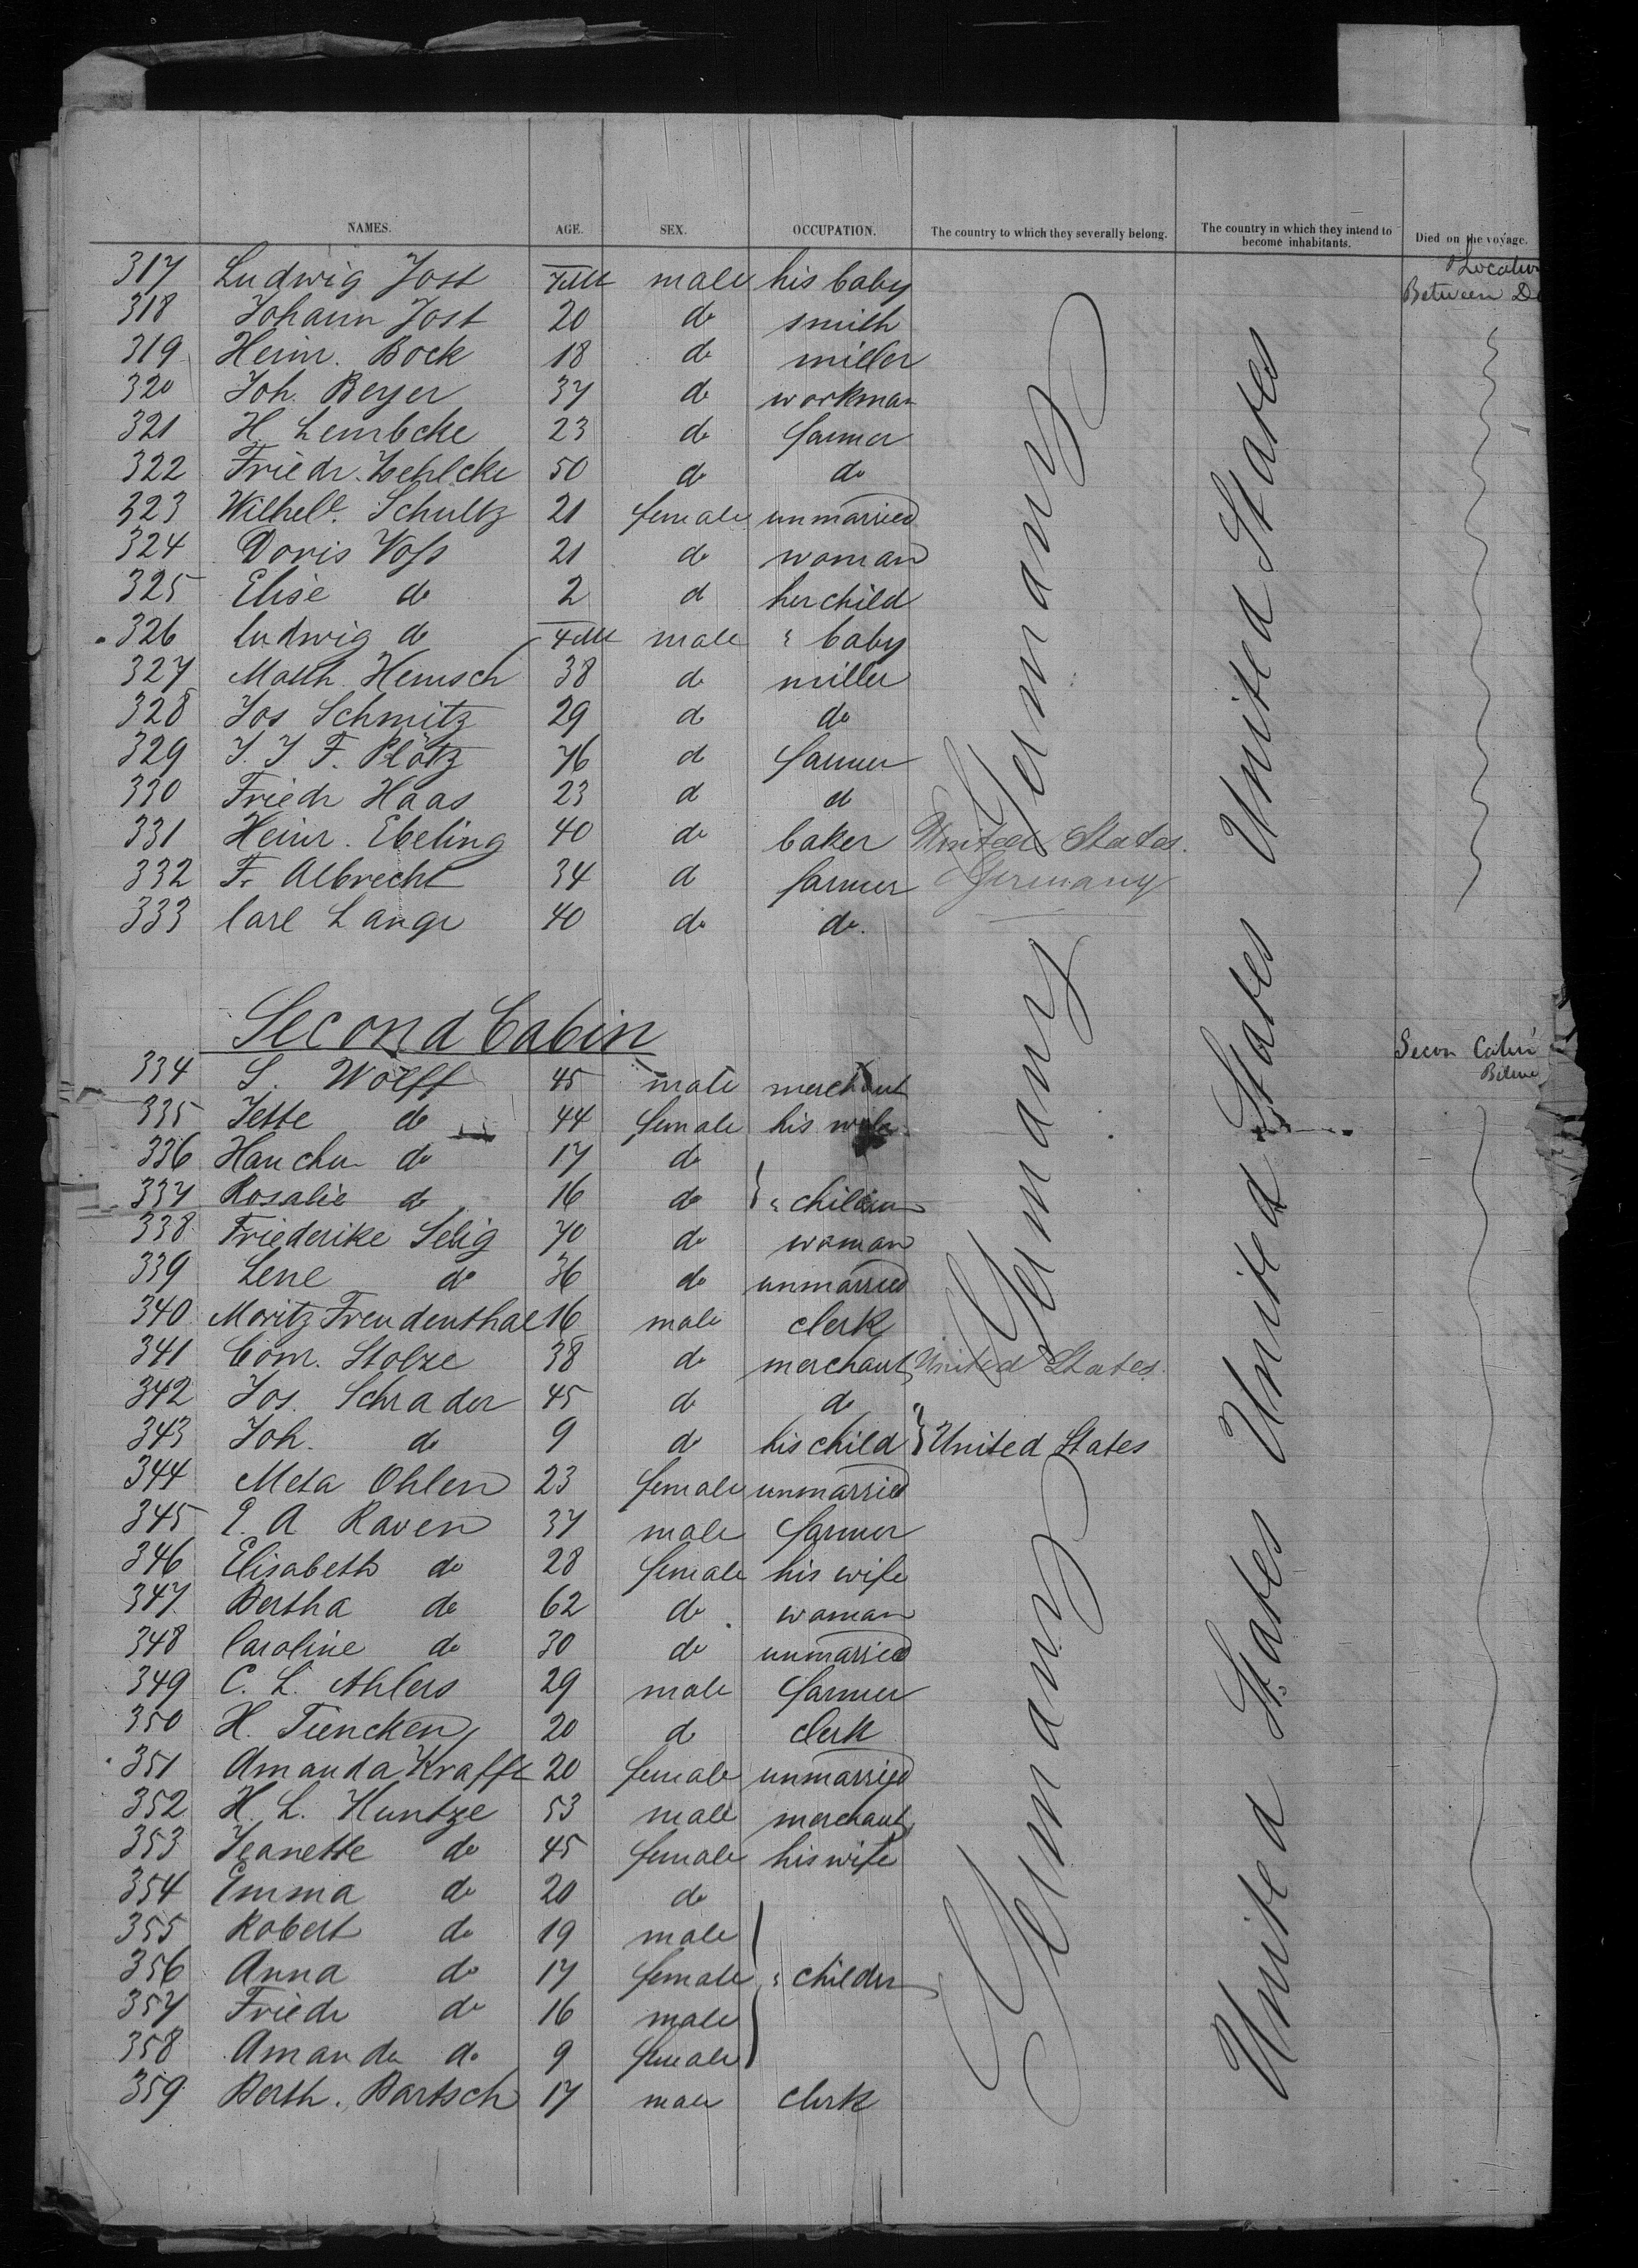 NAMES. AGE. SEX. OCCUPATION. The country to which they severally belong. The country in which they intend to become inhabitants. Died on the voyage.
Location
Between De
317 Ludwig Jost male his baby
318 Johann Jost 20 do smith
319 Heinr. Bock 18 do miller
320 Joh. Beyer 37 do workman
321 H. Lembcke 23 do farmer
322 Friedr. 50 do do
323 Wilhele. Schultz 21 female unmarried
324 Doris Voss 21 do woman
325 Elise do 2 d her child
326 Ludwig do male " baby
327 Math. Hemsch 38 d miller
328 Jos Schmitz 29 d do
329 J. J. F. Plötz 76 d farmer
330 Friedr Haas 23 d d
331 Heinr. Ebeling 40 do baker United States.
332 F. Albrecht 34 d farmer Germany
333 Carl Lange 40 do do.
Germany United States
Second Cabin
Secon Cabin
334 S. Wolff 45 male merchant
335 Jette do 44 female his wife
336 Hanchen do 17 do
337 Rosalie do 16 do } " children
338 Friederike Selig 70 do woman
339 Lene do 36 do unmarried
340 Moritz Freudenthal 16 male clerk
341 Com. Stolze 38 do merchant United States.
342 Jos. Schrader 45 d do
343 Joh. do 9 do his child } United States
344 Meta Ohlen 23 female unmarried
345 E. A Raven 37 male farmer
346 Elisabeth do 28 female his wife
347 Bertha do 62 do woman
348 Caroline do 30 do unmarried
349 C. L. Ahlers 29 male farmer
350 H. Tiencken 20 d clerk
351 Amanda Krafft 20 female unmarried
352 H. L. Huntze 53 male merchant
353 Jeanette do 45 female his wife
354 Emma do 20 do
355 Robert do 19 male
356 Anna do 17 female " childer
357 Friedr do 16 male
358 Amanda do 9 female
359 Berth. Bartsch 17 male clerk
Germany United States
Germany United States